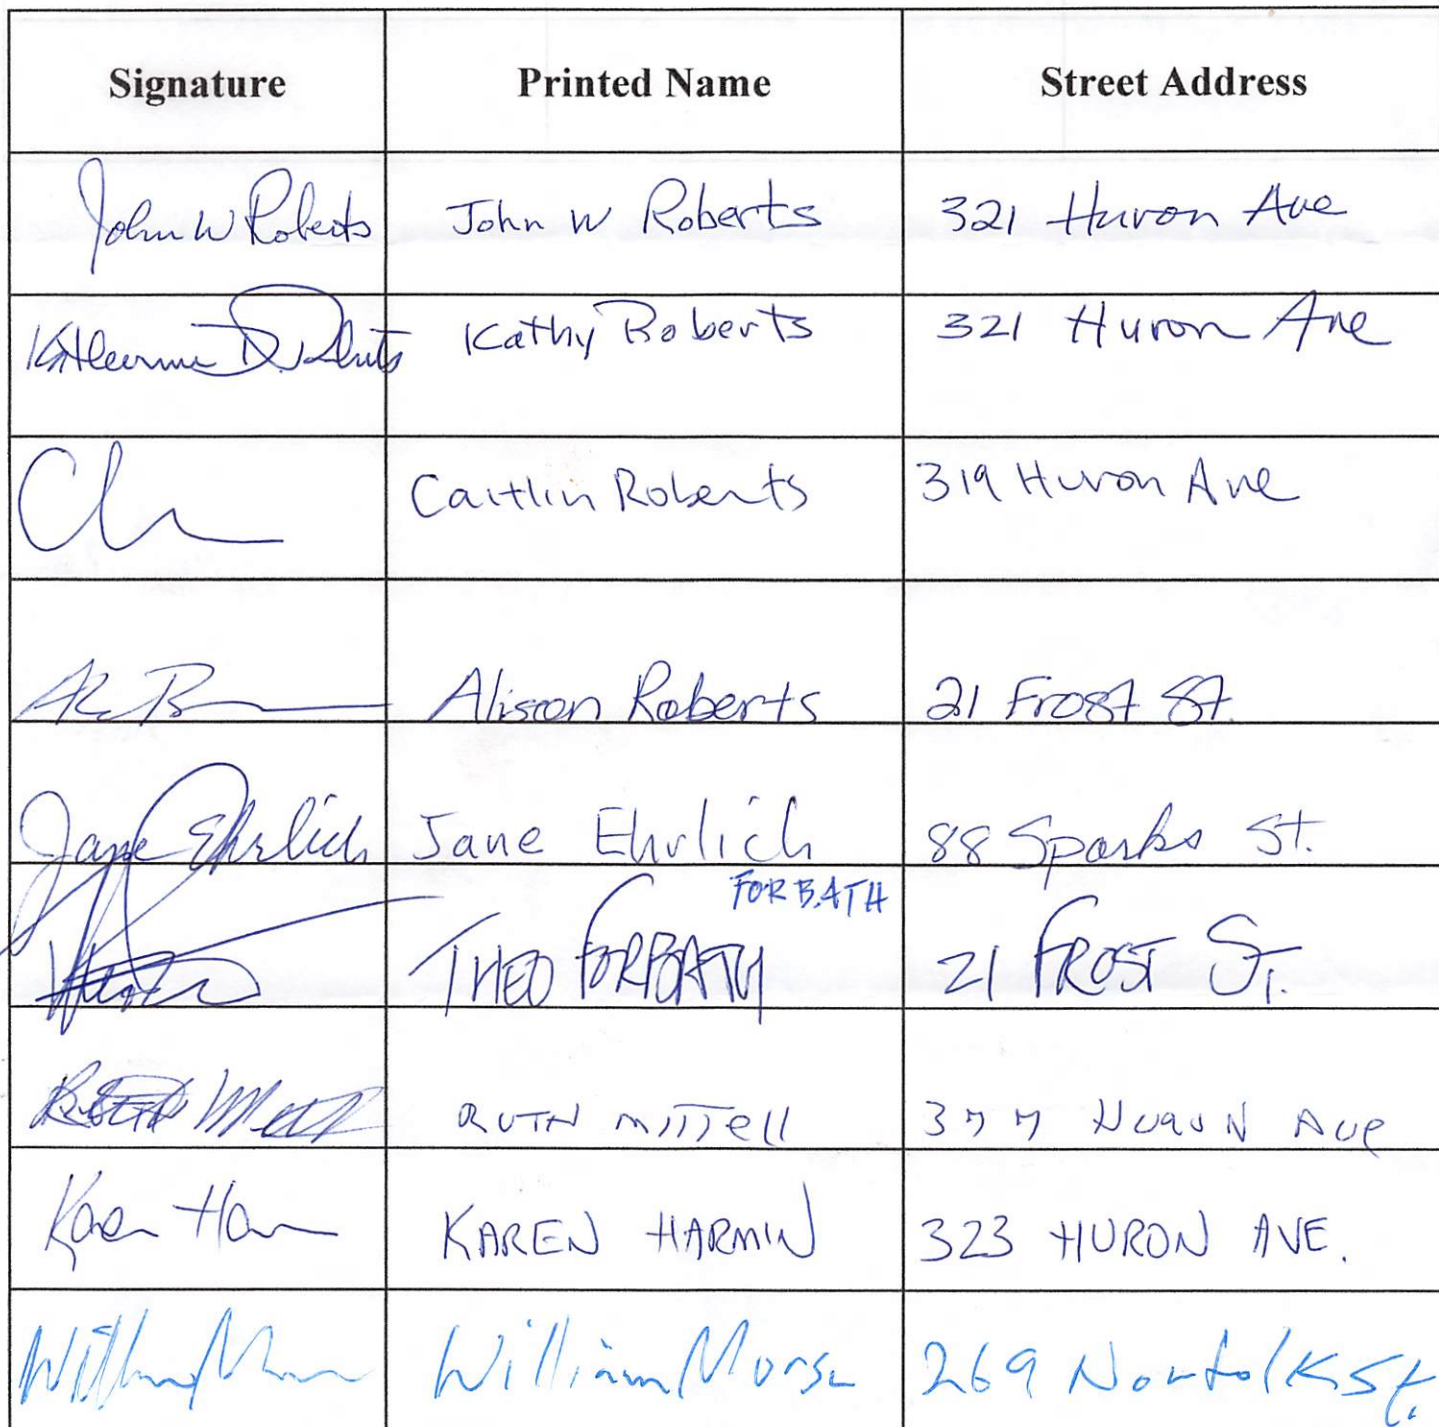 Signature Printed Name Street Address
John W Roberts John W Roberts 321 Huron Ave
Katherine D. Roberts Kathy Roberts 321 Huron Ave
Caitlin Roberts 319 Huron Ave
Alison Roberts 21 Frost St.
Jane Ehrlich Jane Ehrlich 88 Sparks St.
FORBATH
THEO FORBATH 21 FROST ST.
RUTH MITTell 377 HURON AVe
Karen Har KAREN HARMIN 323 HURON AVE.
William Morse 269 Norfolk St.